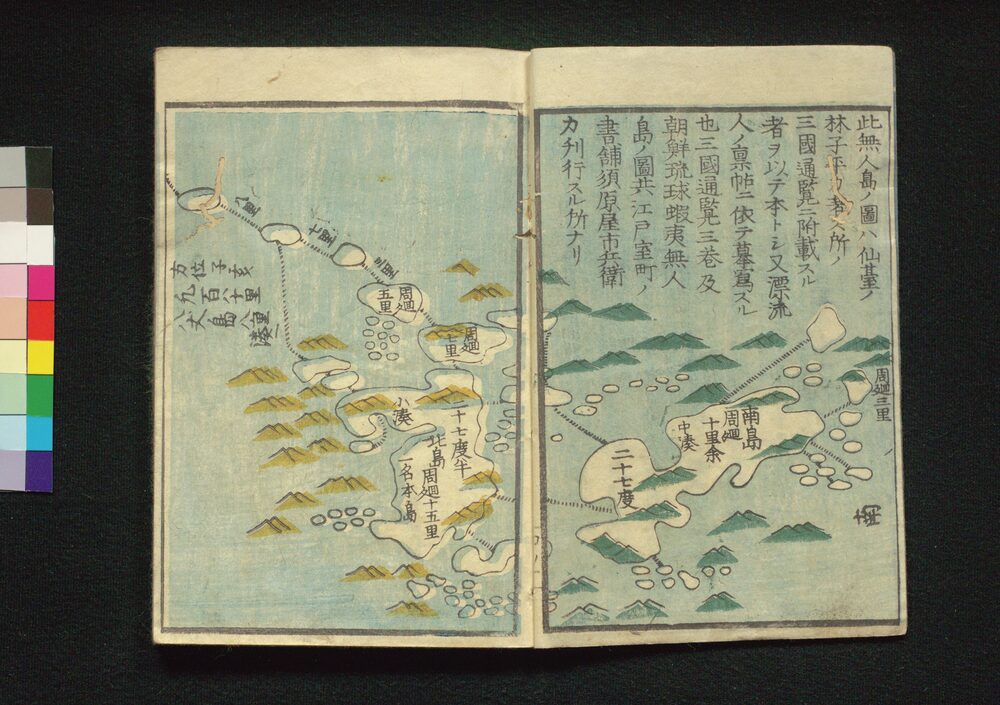 此無人島ノ圖ハ仙臺ノ
林子平カ著ス所ノ
三國通覧ニ附載スル
者ヲ以テ本トシ又漂流
人ノ稟帖ニ依テ摹寫スル
也三國通覧三巻及
朝鮮琉球蝦夷無人
島ノ圖共江戸室町ノ
書舗須原屋市兵衛
カ刋行スル所ナリ
周廻三里
南島
周廻
十里余
中湊
二十七度
周廻
七里
周廻
五里
二十七度半
北島周廻十五里
一名本島
小湊
亥子位カ
八十里
八丈島
湊